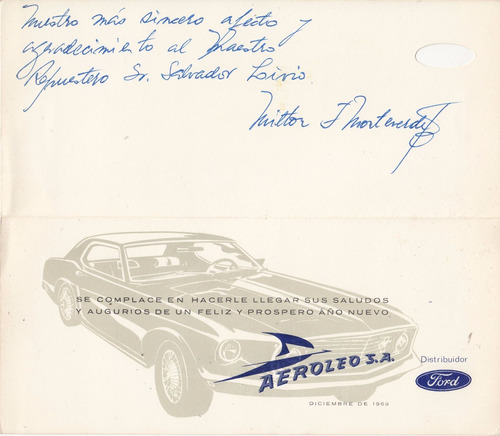 Nuestro más sincero afecto y
agradecimiento al Maestro
Repuestero Sr. Salvador Livio.
Milton F Monteverde
SE COMPLACE EN HACERLE LLEGAR SUS SALUDOS
Y AUGURIOS DE UN FELIZ Y PROSPERO AÑO NUEVO
AEROLEO S.A.
Distribuidor
Ford
DICIEMBRE DE 1969